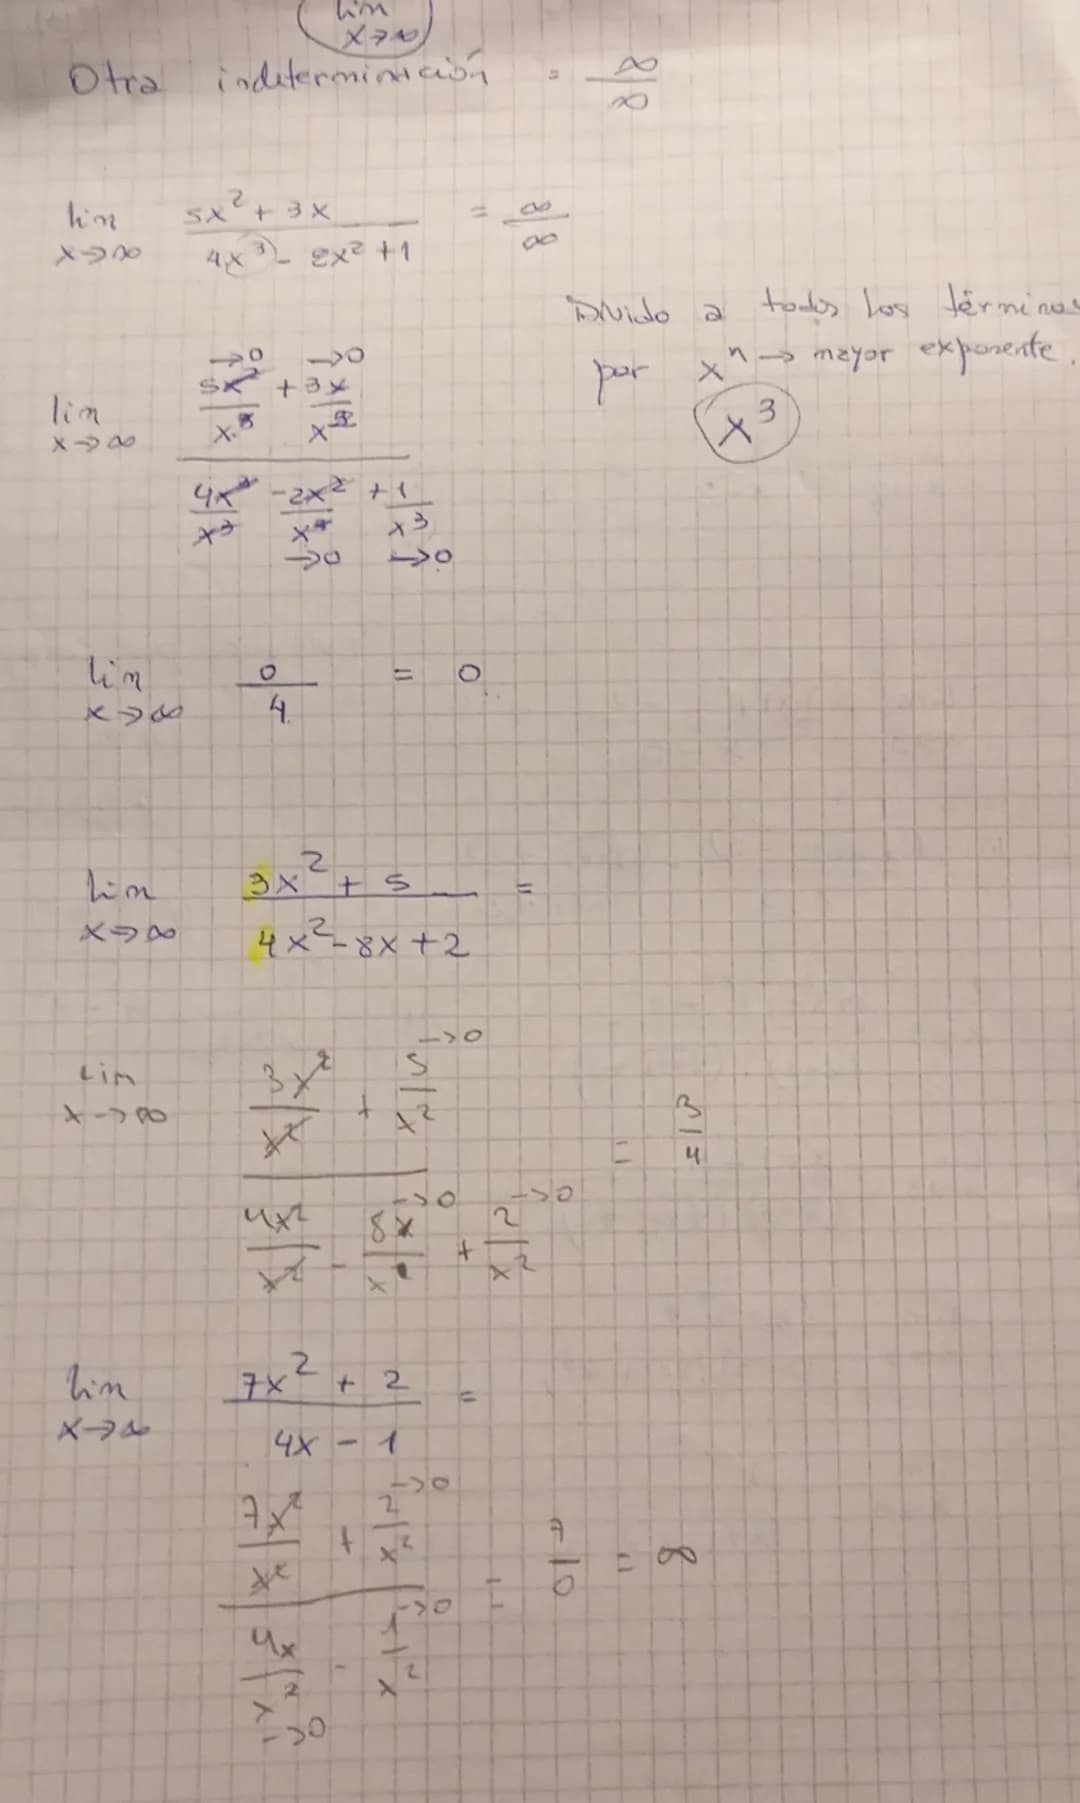 lim
x→∞
Otra indeterminación = ∞/∞
lim x→∞ (5x² + 3x)/(4x³ - 2x² + 1) = ∞/∞
Divido a todos los términos
por xⁿ → mayor exponente.
x³
→0 →0
lim x→∞ (5x²/x³ + 3x/x³)/(4x³/x³ - 2x²/x³ + 1/x³)
→0 →0
lim x→∞ 0/4 = 0
lim x→∞ (3x² + 5)/(4x² - 8x + 2) =
→0
lim x→∞ (3x²/x² + 5/x²)/(4x²/x² - 8x/x² + 2/x²) = 3/4
→0 →0
lim x→∞ (7x² + 2)/(4x - 1) =
→0
(7x²/x² + 2/x²)/(4x/x² - 1/x²) = 7/0 = ∞
→0
→0